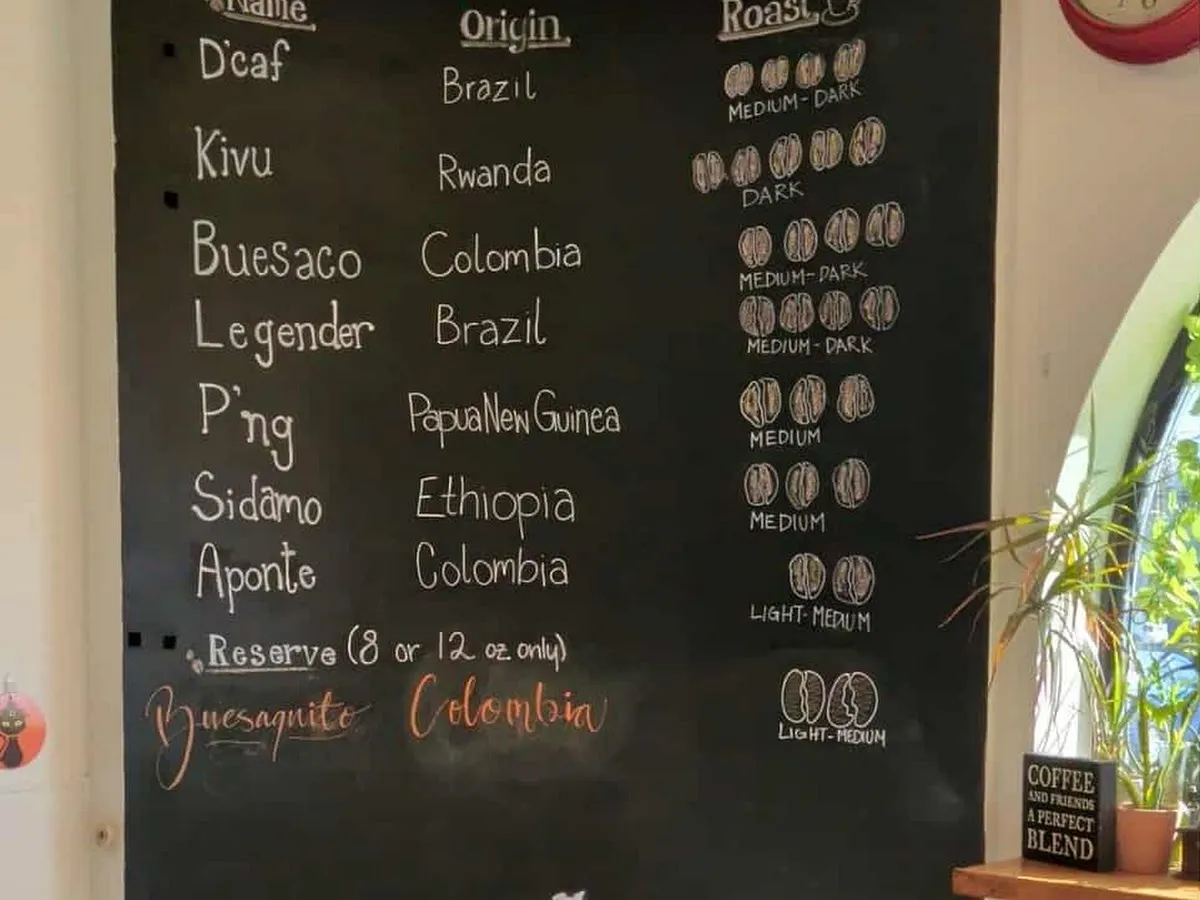 Name Origin Roast
D'caf Brazil MEDIUM-DARK
Kivu Rwanda DARK
Buesaco Colombia MEDIUM-DARK
Legender Brazil MEDIUM-DARK
P'ng Papua New Guinea MEDIUM
Sidamo Ethiopia MEDIUM
Aponte Colombia LIGHT-MEDIUM
Reserve (8 or 12 oz only)
Buesaquito Colombia LIGHT-MEDIUM
COFFEE
AND FRIENDS
A PERFECT
BLEND